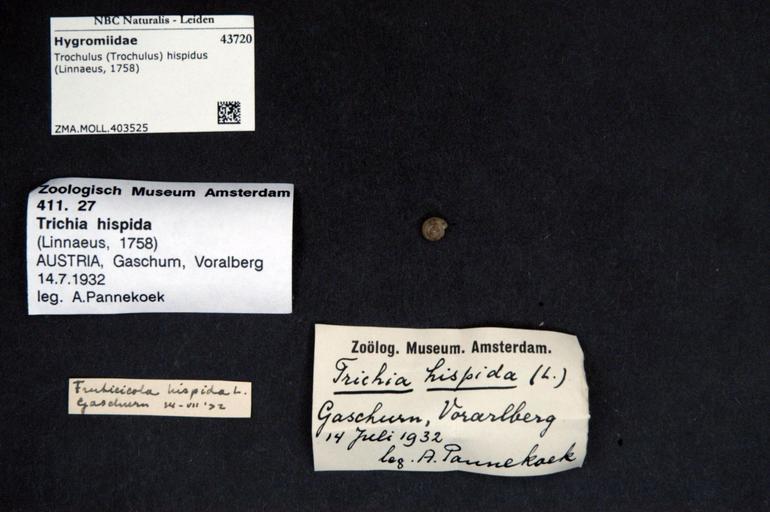 NBC Naturalis - Leiden
Hygromiidae 43720
Trochulus (Trochulus) hispidus
(Linnaeus, 1758)
ZMA.MOLL.403525
Zoologisch Museum Amsterdam
411. 27
Trichia hispida
(Linnaeus, 1758)
AUSTRIA, Gaschum, Voralberg
14.7.1932
leg. A.Pannekoek
Fruticicola hispida L.
Gaschurn 14-VII '32
Zoölog. Museum. Amsterdam.
Trichia hispida (L.)
Gaschurn, Vorarlberg
14 Juli 1932
leg. A. Pannekoek